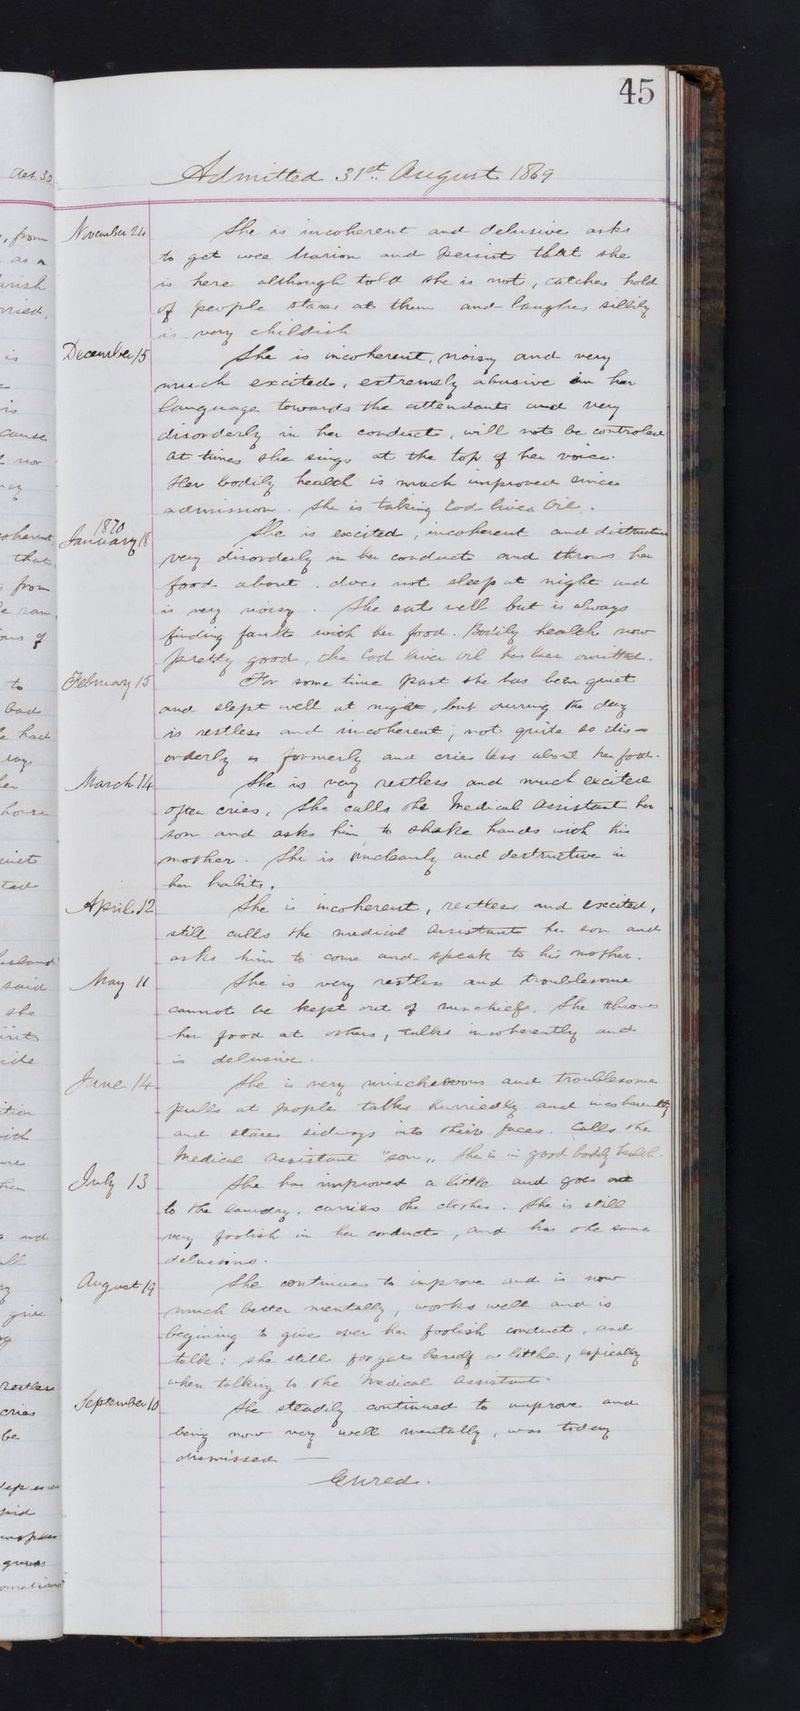 45
Admitted 31st August 1869
November 24 She is incoherent and delusive asks
to get wee Marion and persist that she
is here although told she is not, catches hold
of people stares at them and laughs sillily
is very childish
December 15 She is incoherent, noisy and very
much excited, extremely abusive in her
language towards the attendants and very
disorderly in her conduct, will not be controled
at times she sings at the top of her voice.
Her bodily health is much improved since
admission. She is taking Cod liver Oil.
1870
January 18 She is excited, incoherent and distructive
very disorderly in her conduct and throws her
food about. does not sleep at night and
is very noisy. She eats well but is always
finding fault with her food. Bodily health now
pretty good, the Cod liver oil has been omitted.
February 15 For some time past she has been quiet
and slept well at night, but during the day
is restless and incoherent, not quite so dis-
orderly as formerly and cries less about her food.
March 14 She is very restless and much excited
often cries, She calls the Medical Assistant her
son and asks him to shake hands with his
mother. She is uncleanly and destructive in
her habits.
April 12 She is incoherent, restless and excited,
still calls the medical assistant her son and
asks him to come and speak to his mother.
May 11 She is very restless and troublesome
cannot be kept out of mischief. She throws
her food at others, talks incoherently and
is delusive.
June 14 She is very mischevous and troublesome
pulls at people talks hurriedly and incoherently
and stares sideways into their faces. Calls the
Medical Assistant "son" She is in good bodily health.
July 13 She has improved a little and goes out
to the laundry, carries the clothes. She is still
very foolish in her conduct, and has the same
delusions.
August 19 She continues to improve and is now
much better mentally, works well and is
begining to give over her foolish conduct, and
talk; she still forgets herself a little, espically
when talking to the Medical Assistant.
September 10 She steadily continued to improve and
being now very well mentally, was today
dismissed —
Cured.